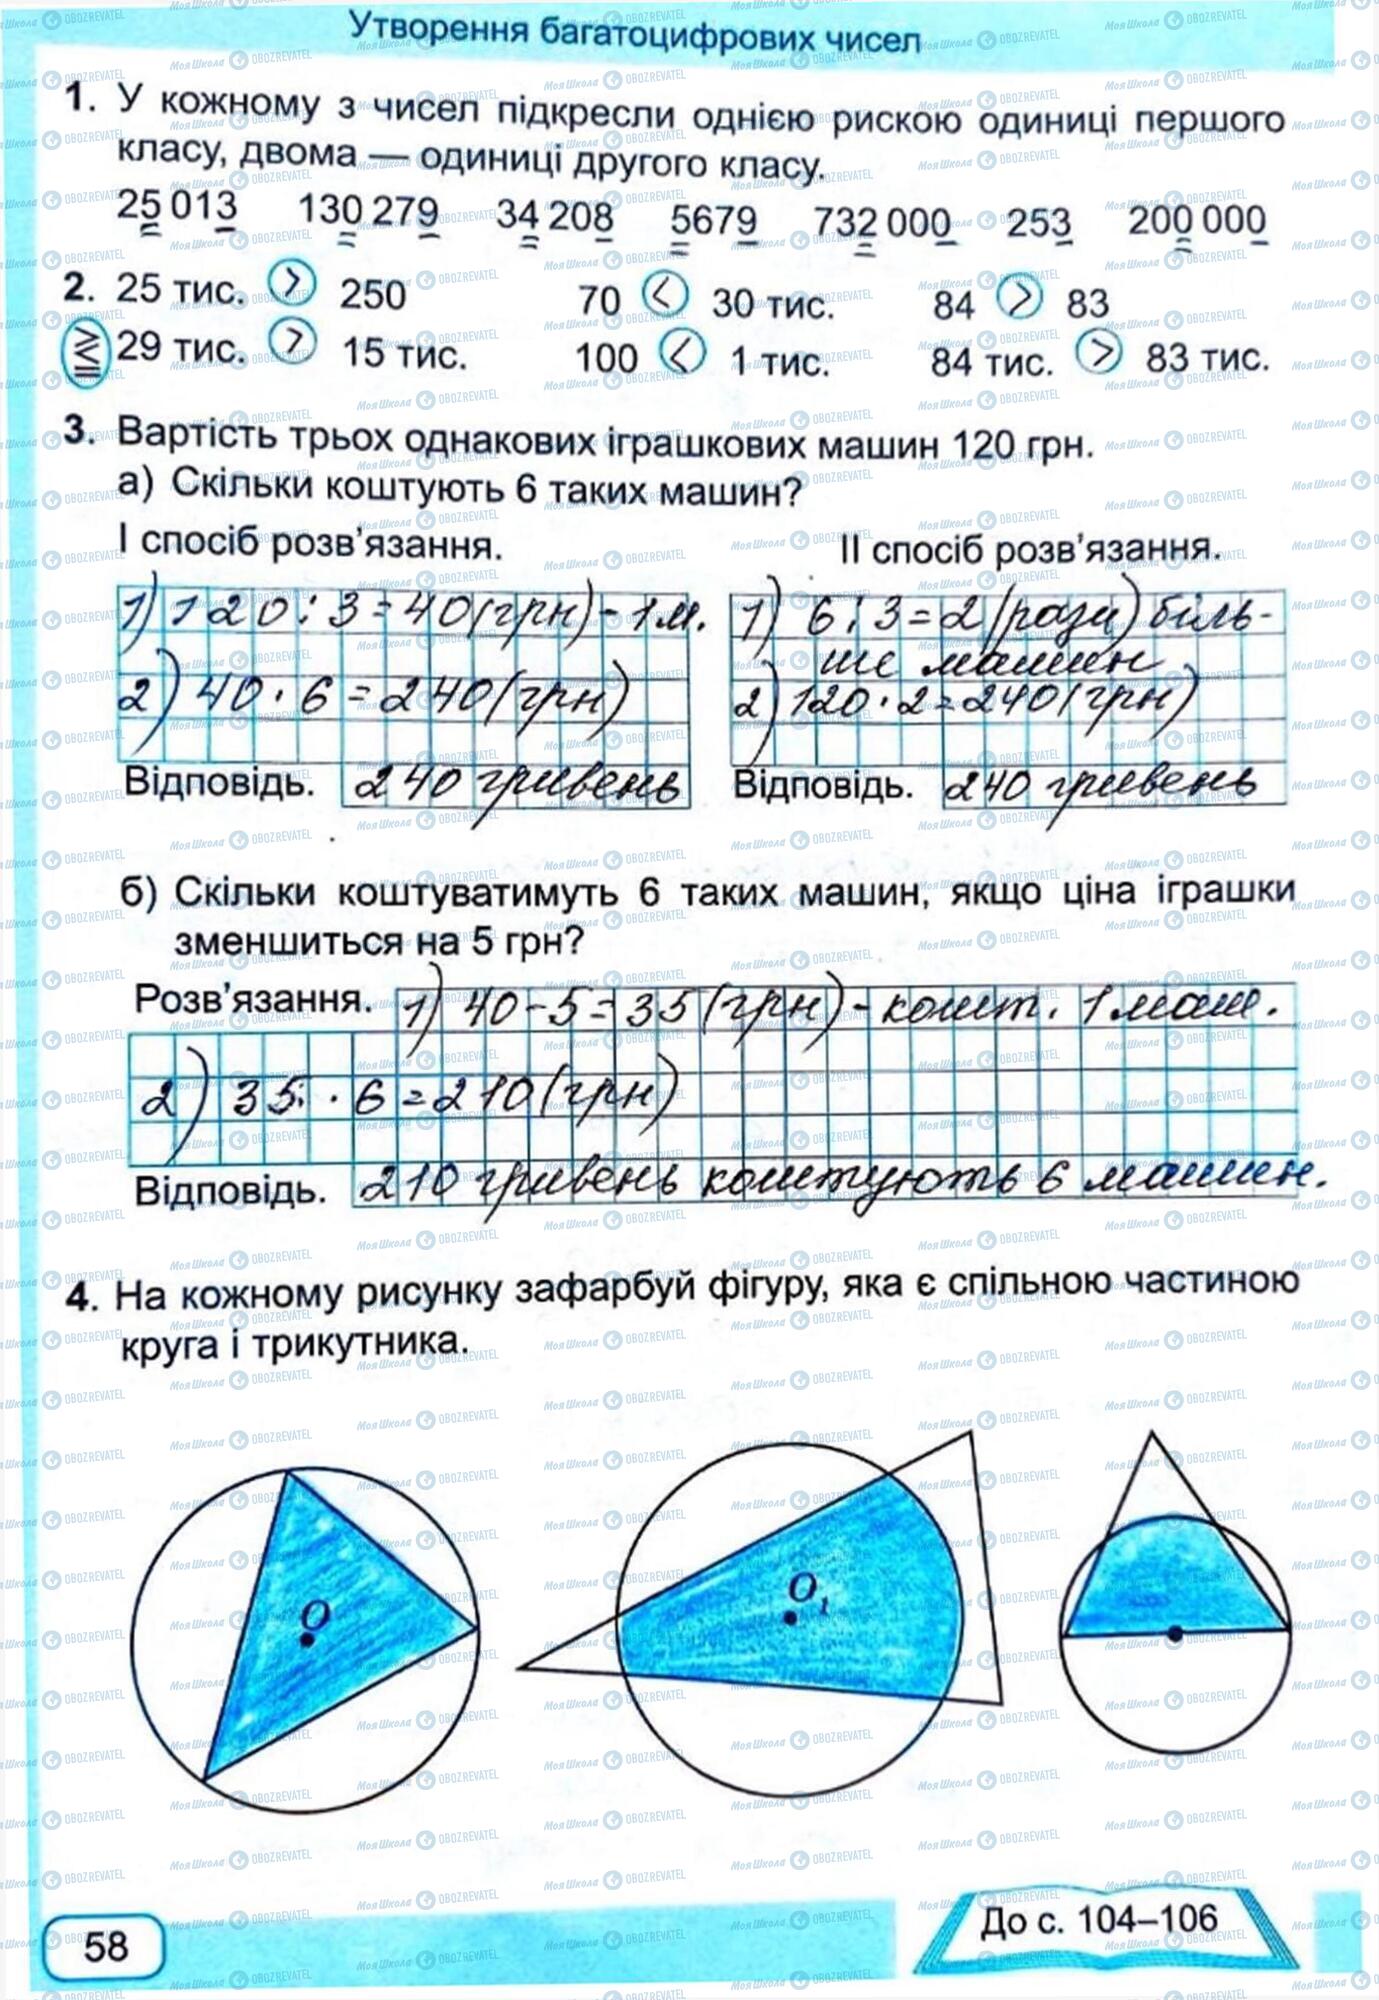 Утворення багатоцифрових чисел
1. У кожному з чисел підкресли однією рискою одиниці першого
класу, двома — одиниці другого класу.
25 013 130 279 34 208 5679 732 000 253 200 000
2. 25 тис. > 250 70 < 30 тис. 84 > 83
29 тис. > 15 тис. 100 < 1 тис. 84 тис. > 83 тис.
3. Вартість трьох однакових іграшкових машин 120 грн.
а) Скільки коштують 6 таких машин?
І спосіб розв'язання. ІІ спосіб розв'язання.
1) 120 : 3 = 40 (грн) - 1 м. 1) 6 : 3 = 2 (рази) біль-
ше машин
2) 40 · 6 = 240 (грн) 2) 120 · 2 = 240 (грн)
Відповідь. 240 гривень Відповідь. 240 гривень
б) Скільки коштуватимуть 6 таких машин, якщо ціна іграшки
зменшиться на 5 грн?
Розв'язання. 1) 40 - 5 = 35 (грн) - кошт. 1 маш.
2) 35 · 6 = 210 (грн)
Відповідь. 210 гривень коштують 6 машин.
4. На кожному рисунку зафарбуй фігуру, яка є спільною частиною
круга і трикутника.
О О₁
58 До с. 104–106
МояШкола OBOZREVATEL